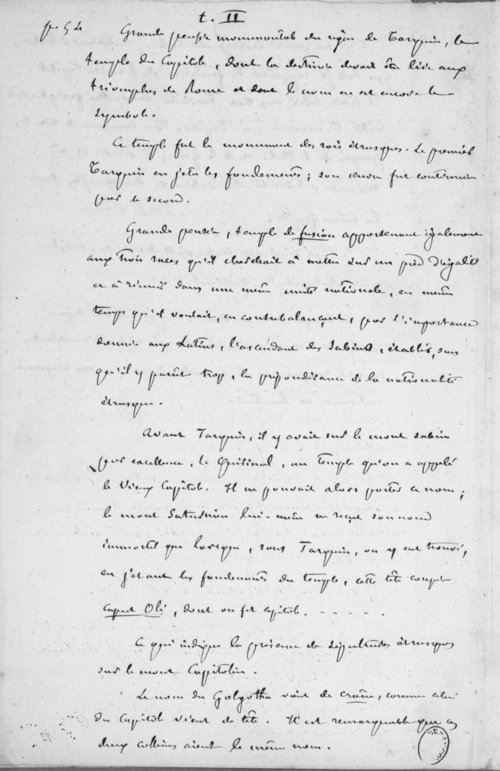 t. II
p. 54 Grande pensée monumentale du règne de Tarquin, le
temple du Capitole, dont la destinée devait être liée aux
triomphes de Rome et dont le nom en est encore le
symbole.
Ce temple fut le monument des rois étrusques. Le premier
Tarquin en jeta les fondements ; son œuvre fut continuée
par le second.
Grande pensée, temple de fusion appartenant également
aux trois races qu'il cherchait à mettre sur un pied d'égalité
et à réunir dans une même unité nationale, en même
temps qu'il voulait, en contrebalançant, par l'importance
donnée aux Latins, l'ascendant des Sabins, établir, sans
qu'il y parût trop, la prépondérance de la nationalité
étrusque.
Avant Tarquin, il y avait sur le mont sabin
par excellence, le Quirinal, un temple qu'on a appelé
le Vieux Capitole. Il ne pouvait alors porter ce nom ;
le mont Saturnien lui-même ne reçut son nom
immortel que lorsque, sous Tarquin, on y eut trouvé,
en jetant les fondements du temple, cette tête coupée
Caput Oli, dont on fit capitole. . . . . .
Ce qui indique la présence de sépultures étrusques
sur le mont Capitolin.
Le nom du Golgotha vient de crâne, comme celui
du Capitole vient de tête. Il est remarquable que ces
deux collines aient le même nom.